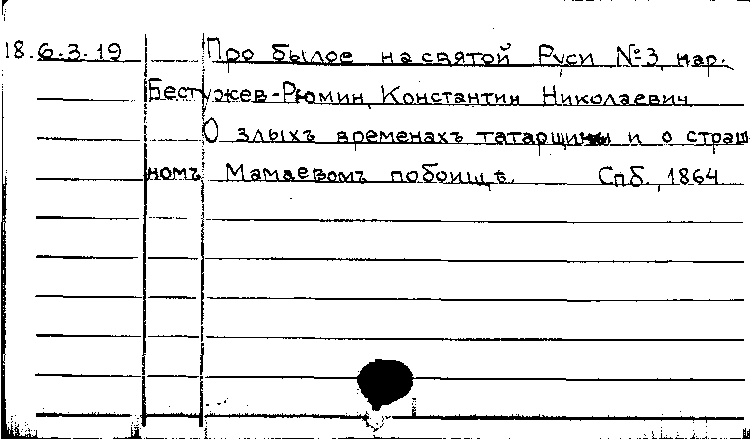 18.6.3.19 Про былое на святой Руси №3, нар.
Бестужев-Рюмин, Константин Николаевич
О злыхъ временахъ татарщины и о страш
номъ Мамаевомъ побоищѣ. Спб., 1864